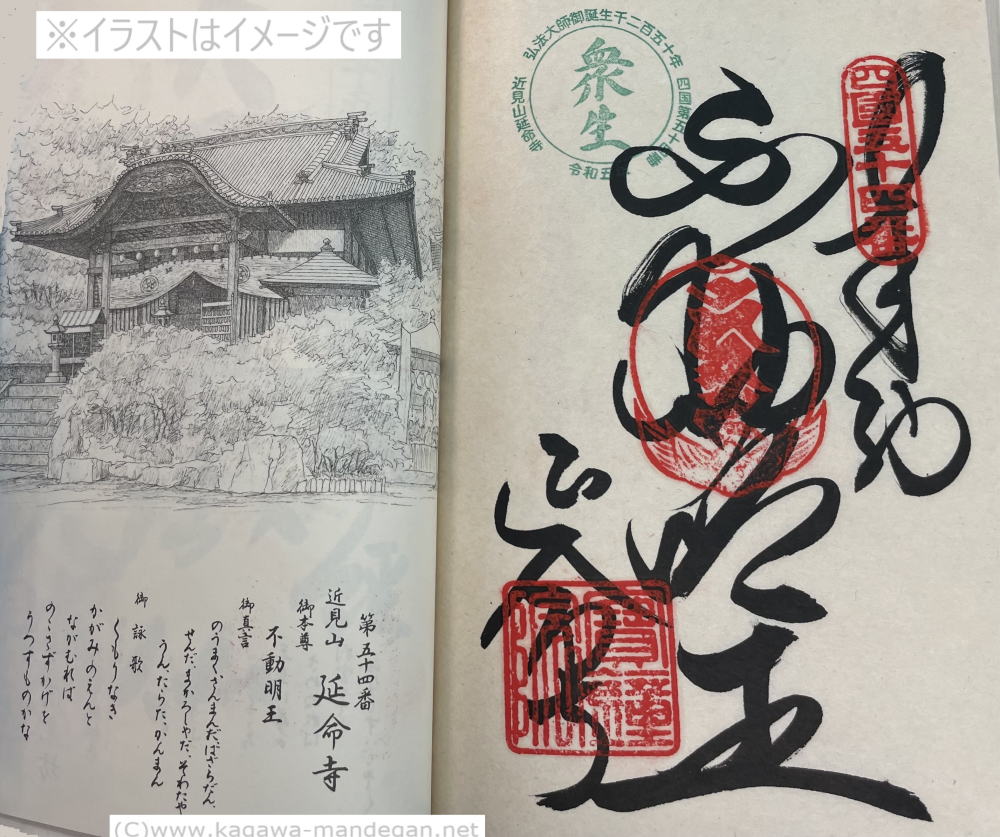 ※イラストはイメージです
第五十四番
近見山 延命寺
御本尊
不動明王
御真言
のうまくさんまんだ、ばざらだん、
せんだ、まかろしゃだ、そわたや
うんたらた、かんまん
御詠歌
くもりなき
かがみのえんと
ながむれば
のこさずかげを
うつすものかな
弘法大師御誕生千二百五十年
四国第五十四番
近見山延命寺
衆生
令和五年
四国五十四番
奉納
不動明王
延命寺
(C)www.kagawa-mandegan.net